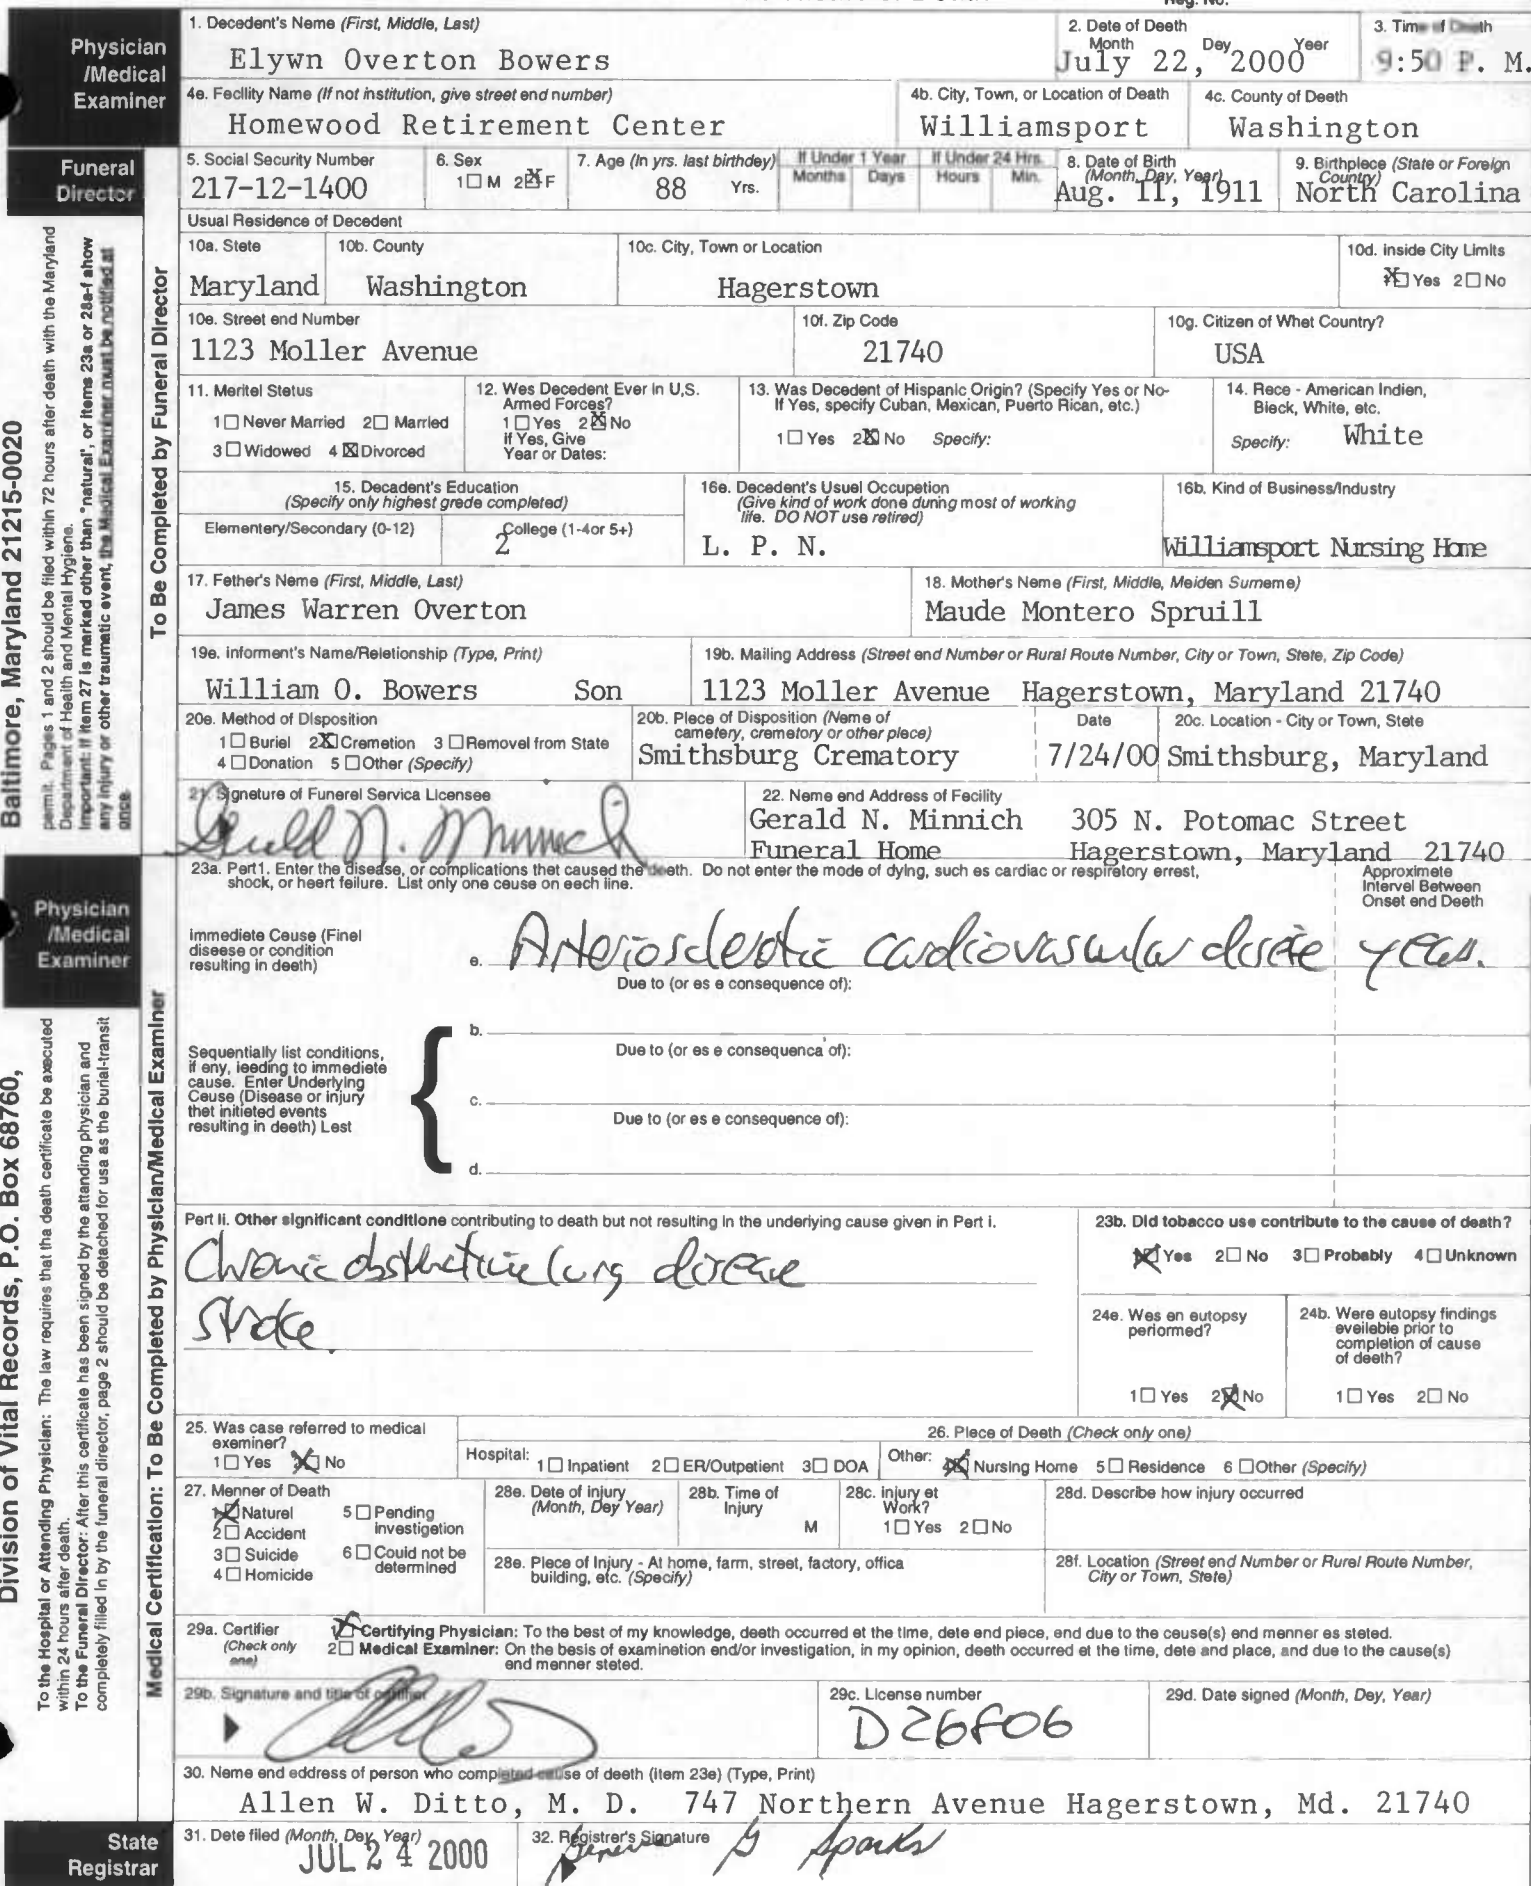 Reg. No.
Physician /Medical Examiner
1. Decedent's Name (First, Middle, Last)
Elywn Overton Bowers
2. Date of Death
Month Day Year
July 22, 2000
3. Time of Death
9:50 P. M.
4a. Facility Name (If not institution, give street and number)
Homewood Retirement Center
4b. City, Town, or Location of Death
Williamsport
4c. County of Death
Washington
Funeral Director
5. Social Security Number
217-12-1400
6. Sex
1☐ M 2☒ F
7. Age (In yrs. last birthday)
88 Yrs.
If Under 1 Year
Months Days
If Under 24 Hrs.
Hours Min.
8. Date of Birth
(Month, Day, Year)
Aug. 11, 1911
9. Birthplace (State or Foreign
Country)
North Carolina
Usual Residence of Decedent
10a. State
Maryland
10b. County
Washington
10c. City, Town or Location
Hagerstown
10d. Inside City Limits
☒ Yes 2☐ No
10e. Street and Number
1123 Moller Avenue
10f. Zip Code
21740
10g. Citizen of What Country?
USA
11. Marital Status
1☐ Never Married 2☐ Married
3☐ Widowed 4☒ Divorced
12. Was Decedent Ever in U.S.
Armed Forces?
1☐ Yes 2☒ No
If Yes, Give
Year or Dates:
13. Was Decedent of Hispanic Origin? (Specify Yes or No-
If Yes, specify Cuban, Mexican, Puerto Rican, etc.)
1☐ Yes 2☒ No Specify:
14. Race - American Indian,
Black, White, etc.
Specify: White
15. Decadent's Education
(Specify only highest grade completed)
Elementary/Secondary (0-12)
College (1-4or 5+)
2
16a. Decedent's Usual Occupation
(Give kind of work done during most of working
life. DO NOT use retired)
L. P. N.
16b. Kind of Business/Industry
Williamsport Nursing Home
17. Father's Name (First, Middle, Last)
James Warren Overton
18. Mother's Name (First, Middle, Maiden Surname)
Maude Montero Spruill
19a. Informant's Name/Relationship (Type, Print)
William O. Bowers Son
19b. Mailing Address (Street and Number or Rural Route Number, City or Town, State, Zip Code)
1123 Moller Avenue Hagerstown, Maryland 21740
20a. Method of Disposition
1☐ Burial 2☒ Cremation 3☐ Removal from State
4☐ Donation 5☐ Other (Specify)
20b. Place of Disposition (Name of
cametery, crematory or other place)
Smithsburg Crematory
Date
7/24/00
20c. Location - City or Town, State
Smithsburg, Maryland
21. Signature of Funeral Service Licensee
Gerald N. Minnich
22. Name and Address of Facility
Gerald N. Minnich 305 N. Potomac Street
Funeral Home Hagerstown, Maryland 21740
To Be Completed by Funeral Director
Baltimore, Maryland 21215-0020
permit. Pages 1 and 2 should be filed within 72 hours after death with the Maryland
Department of Health and Mental Hygiene.
Important: If item 27 is marked other than "natural", or items 23a or 28a-f show
any injury or other traumatic event, the Medical Examiner must be notified at
once.
Physician /Medical Examiner
23a. Part1. Enter the disease, or complications that caused the death. Do not enter the mode of dying, such as cardiac or respiratory arrest,
shock, or heart failure. List only one cause on each line.
Approximate
Interval Between
Onset and Death
Immediate Cause (Final
disease or condition
resulting in death)
a. Arteriosclerotic cardiovascular disease years.
Due to (or as a consequence of):
b.
Due to (or as a consequence of):
Sequentially list conditions,
if any, leading to immediate
cause. Enter Underlying
Cause (Disease or injury
that initiated events
resulting in death) Last
c.
Due to (or as a consequence of):
d.
Part II. Other significant conditions contributing to death but not resulting in the underlying cause given in Part I.
Chronic obstructive lung disease
Stroke.
23b. Did tobacco use contribute to the cause of death?
☒ Yes 2☐ No 3☐ Probably 4☐ Unknown
24a. Was an autopsy
performed?
1☐ Yes 2☒ No
24b. Were autopsy findings
available prior to
completion of cause
of death?
1☐ Yes 2☐ No
25. Was case referred to medical
examiner?
1☐ Yes ☒ No
26. Place of Death (Check only one)
Hospital: 1☐ Inpatient 2☐ ER/Outpatient 3☐ DOA Other: ☒ Nursing Home 5☐ Residence 6☐ Other (Specify)
27. Manner of Death
1☒ Natural 5☐ Pending
investigation
2☐ Accident
3☐ Suicide 6☐ Could not be
determined
4☐ Homicide
28a. Date of Injury
(Month, Day Year)
28b. Time of
Injury
M
28c. Injury at
Work?
1☐ Yes 2☐ No
28d. Describe how injury occurred
28e. Place of Injury - At home, farm, street, factory, offica
building, etc. (Specify)
28f. Location (Street and Number or Rural Route Number,
City or Town, State)
29a. Certifier
(Check only
one)
1☒ Certifying Physician: To the best of my knowledge, death occurred at the time, date and place, and due to the cause(s) and manner as stated.
2☐ Medical Examiner: On the basis of examination and/or investigation, in my opinion, death occurred at the time, date and place, and due to the cause(s)
and manner stated.
29b. Signature and title of certifier
29c. License number
D26806
29d. Date signed (Month, Day, Year)
30. Name and address of person who completed cause of death (item 23a) (Type, Print)
Allen W. Ditto, M. D. 747 Northern Avenue Hagerstown, Md. 21740
Medical Certification: To Be Completed by Physician/Medical Examiner
Division of Vital Records, P.O. Box 68760,
To the Hospital or Attending Physician: The law requires that the death certificate be executed
within 24 hours after death.
To the Funeral Director: After this certificate has been signed by the attending physician and
completely filled in by the funeral director, page 2 should be detached for use as the burial-transit
State Registrar
31. Date filed (Month, Day, Year)
JUL 24 2000
32. Registrar's Signature
Geneva G Sparks